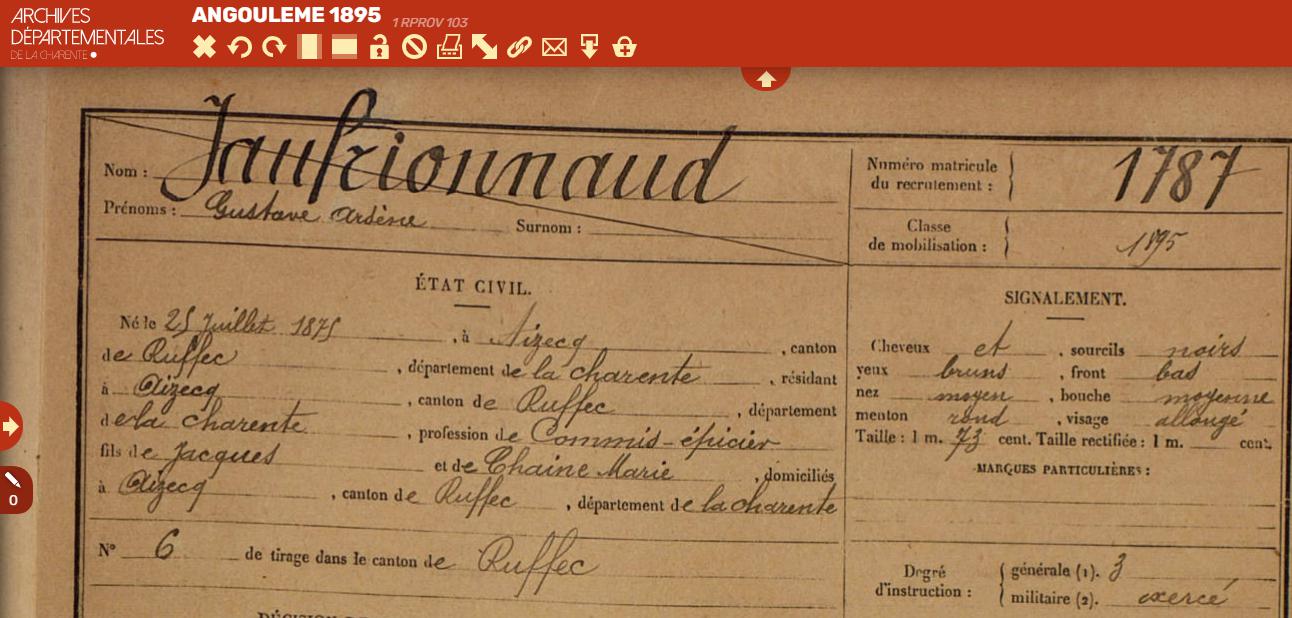 ARCHIVES
DÉPARTEMENTALES
DE LA CHARENTE
ANGOULEME 1895 1 RPROV 103
0
Nom : Jaufrionnaud
Prénoms : Gustave Arsène Surnom :
Numéro matricule
du recrutement : 1787
Classe
de mobilisation : 1895
ÉTAT CIVIL.
Né le 25 Juillet 1875, à Aizecq, canton
de Ruffec, département de la charente, résidant
à Aizecq, canton de Ruffec, département
de la charente, profession de Commis-épicier
fils de Jacques et de Chaine Marie, domiciliés
à Aizecq, canton de Ruffec, département de la charente
N° 6 de tirage dans le canton de Ruffec
SIGNALEMENT.
Cheveux et, sourcils noirs
yeux bruns, front bas
nez moyen, bouche moyenne
menton rond, visage allongé
Taille : 1 m. 73 cent. Taille rectifiée : 1 m. cent.
MARQUES PARTICULIÈRES :
Degré
d'instruction :
générale (1). 3
militaire (2). exercé